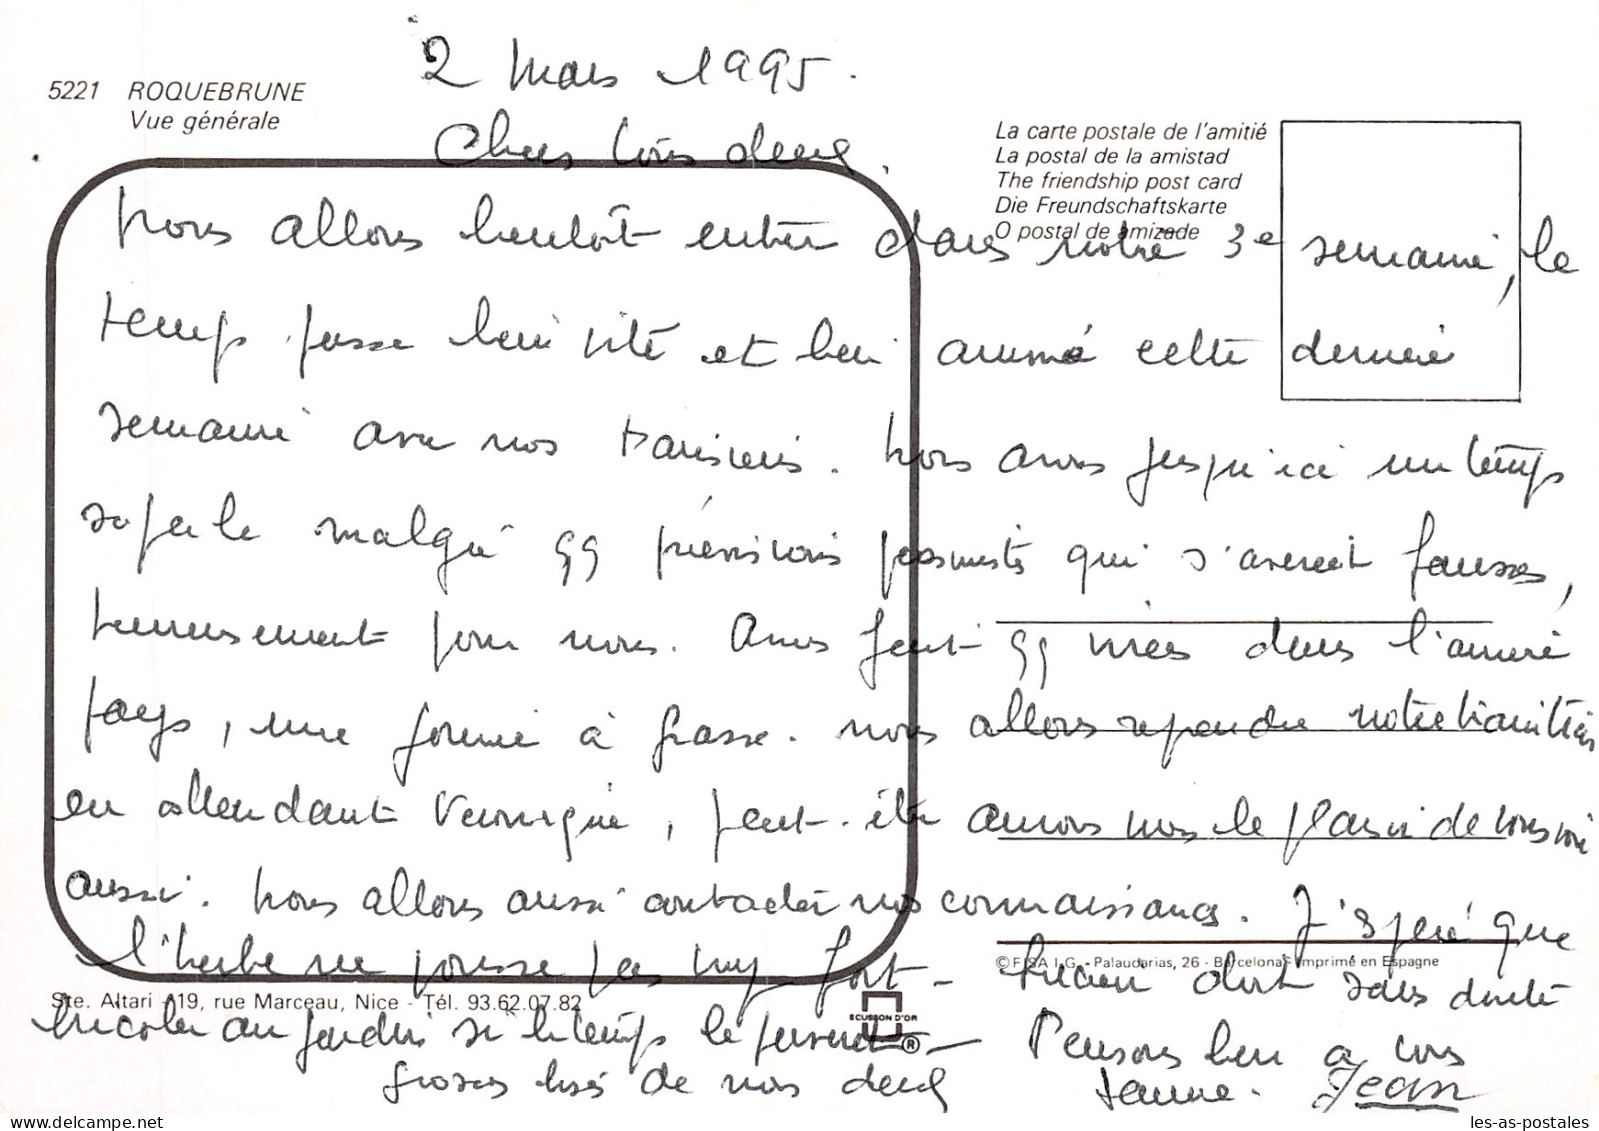 2 Mars 1995.
5221 ROQUEBRUNE
Vue générale
Chers tous deux.
La carte postale de l'amitié
La postal de la amistad
The friendship post card
Die Freundschaftskarte
O postal de amizade
Nous allons bientôt entrer dans notre 3e semaine, le
temps passe bien vite et bien animé cette dernière
semaine avec nos Parisiens. Nous avons jusqu'ici un temps
superbe malgré qq prévisions pessimistes qui s'avèrent fausses,
heureusement pour nous. Avons fait qq virées dans l'arrière
pays, une journée à Grasse. Nous allons reprendre notre
en attendant Véronique, peut-être aurons nous le plaisir de vous voir
aussi. Nous allons aussi contacter nos connaissances. J'espère que
l'herbe ne pousse pas trop fort - Lucien doit sans doute
©FISA I.G. - Palaudarias, 26 - Barcelona - Imprimé en Espagne
Ste. Altari - 19, rue Marceau, Nice - Tél. 93.62.07.82
ECUSSON D'OR ®
bricoler au jardin si le temps le permet - Pensons bien à vous
Grosses bises de nous deux Jeanne. Jean
les-as-postales